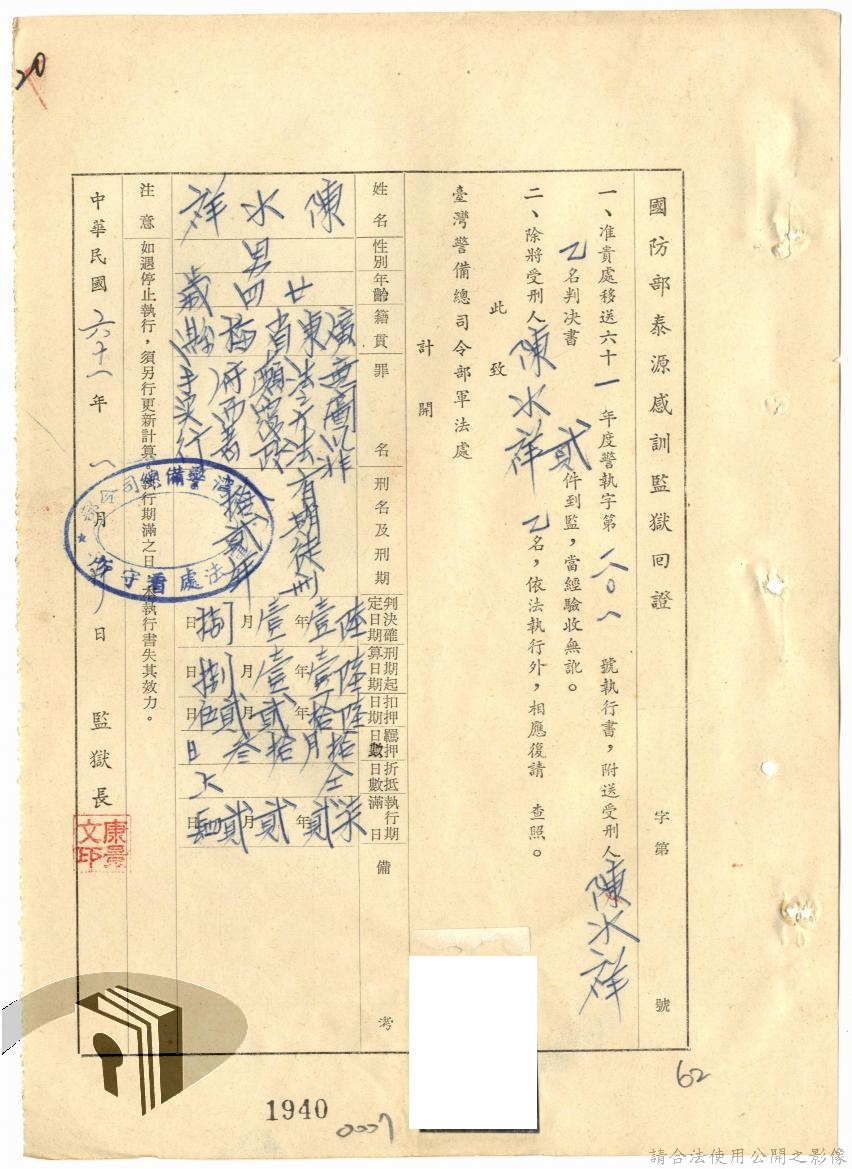 20
國防部泰源感訓監獄回證　字第　號
一、准貴處移送六十一年度警執字第一八〇八號執行書，附送受刑人陳水祥
乙名判决書貳件到監，當經驗收無訛。
二、除將受刑人陳水祥乙名，依法執行外，相應復請　查照。
此致
臺灣警備總司令部軍法處
計開
姓名
陳水祥
性別
男
年齡
廿四歲
籍貫
廣東省
縣
罪名
意圖以非法之方法顛覆政府而着手實行
刑名及刑期
有期徒刑拾貳年
判決確定日期
陸壹年壹月捌日
刑期起算日期
陸壹年壹月捌日
扣押日期
陸拾年貳月伍日
羈押日數
拾月叁拾日
折抵日數
仝上
執行期滿日
柒貳年貳月日
備考
注意　如遇停止執行，須另行更新計算。執行期滿之日，本執行書失其效力。
中華民國六十一年一月　日　監獄長
康景文印
警備總司令
法處看守所
1940
0007
62
請合法使用公開之影像